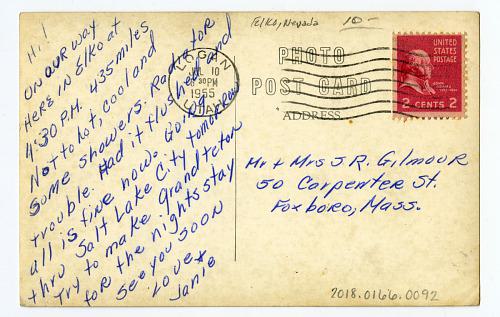 Hi!
on our way
Here in Elko at
4:30 P.M. 435 miles
Not to hot, cool and
some showers. for
trouble. Had it flu held and
all is fine now. Going
thru Salt Lake City tomorrow
try to make Grand teton
for the nights stay
see you soon
Love
Janie
Elko, Nevada
10-
LOGAN
JUL 10
30 PM
1955
UTAH
PHOTO
POST CARD
ADDRESS
UNITED
STATES
POSTAGE
JOHN
ADAMS
2 CENTS 2
Mr + Mrs J R. Gilmour
50 Carpenter St.
Foxboro, Mass.
2018.0166.0092